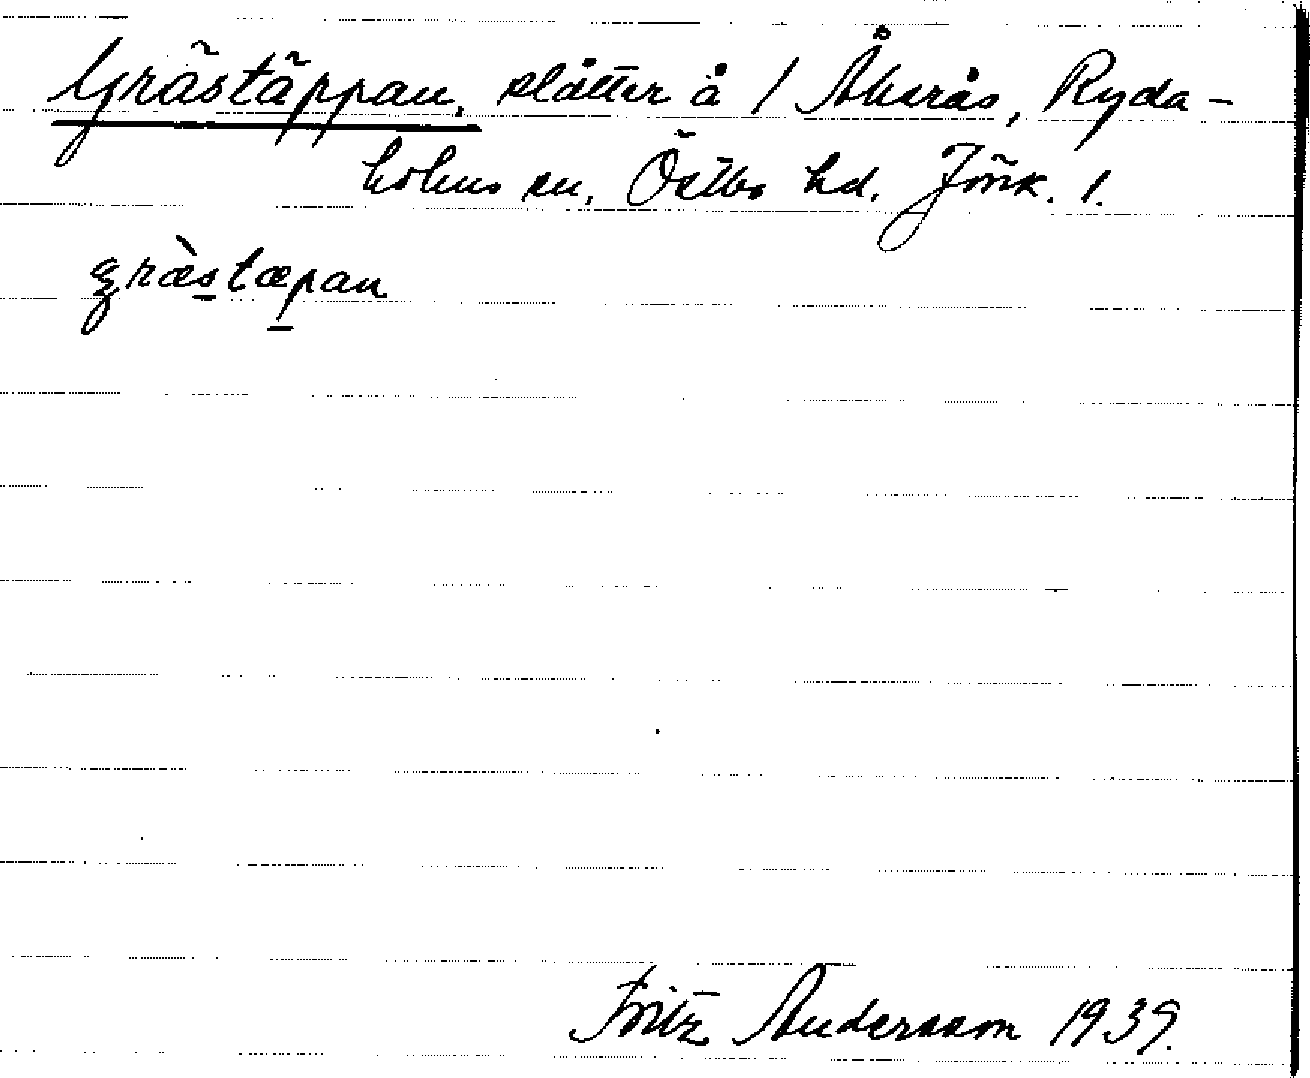 Grästäppan, slåtter å / Åkerås, Ryda-
holms sn, Östbo hd. Jönk. l.
græ̀stæpan
Fritz Andersson 1939.